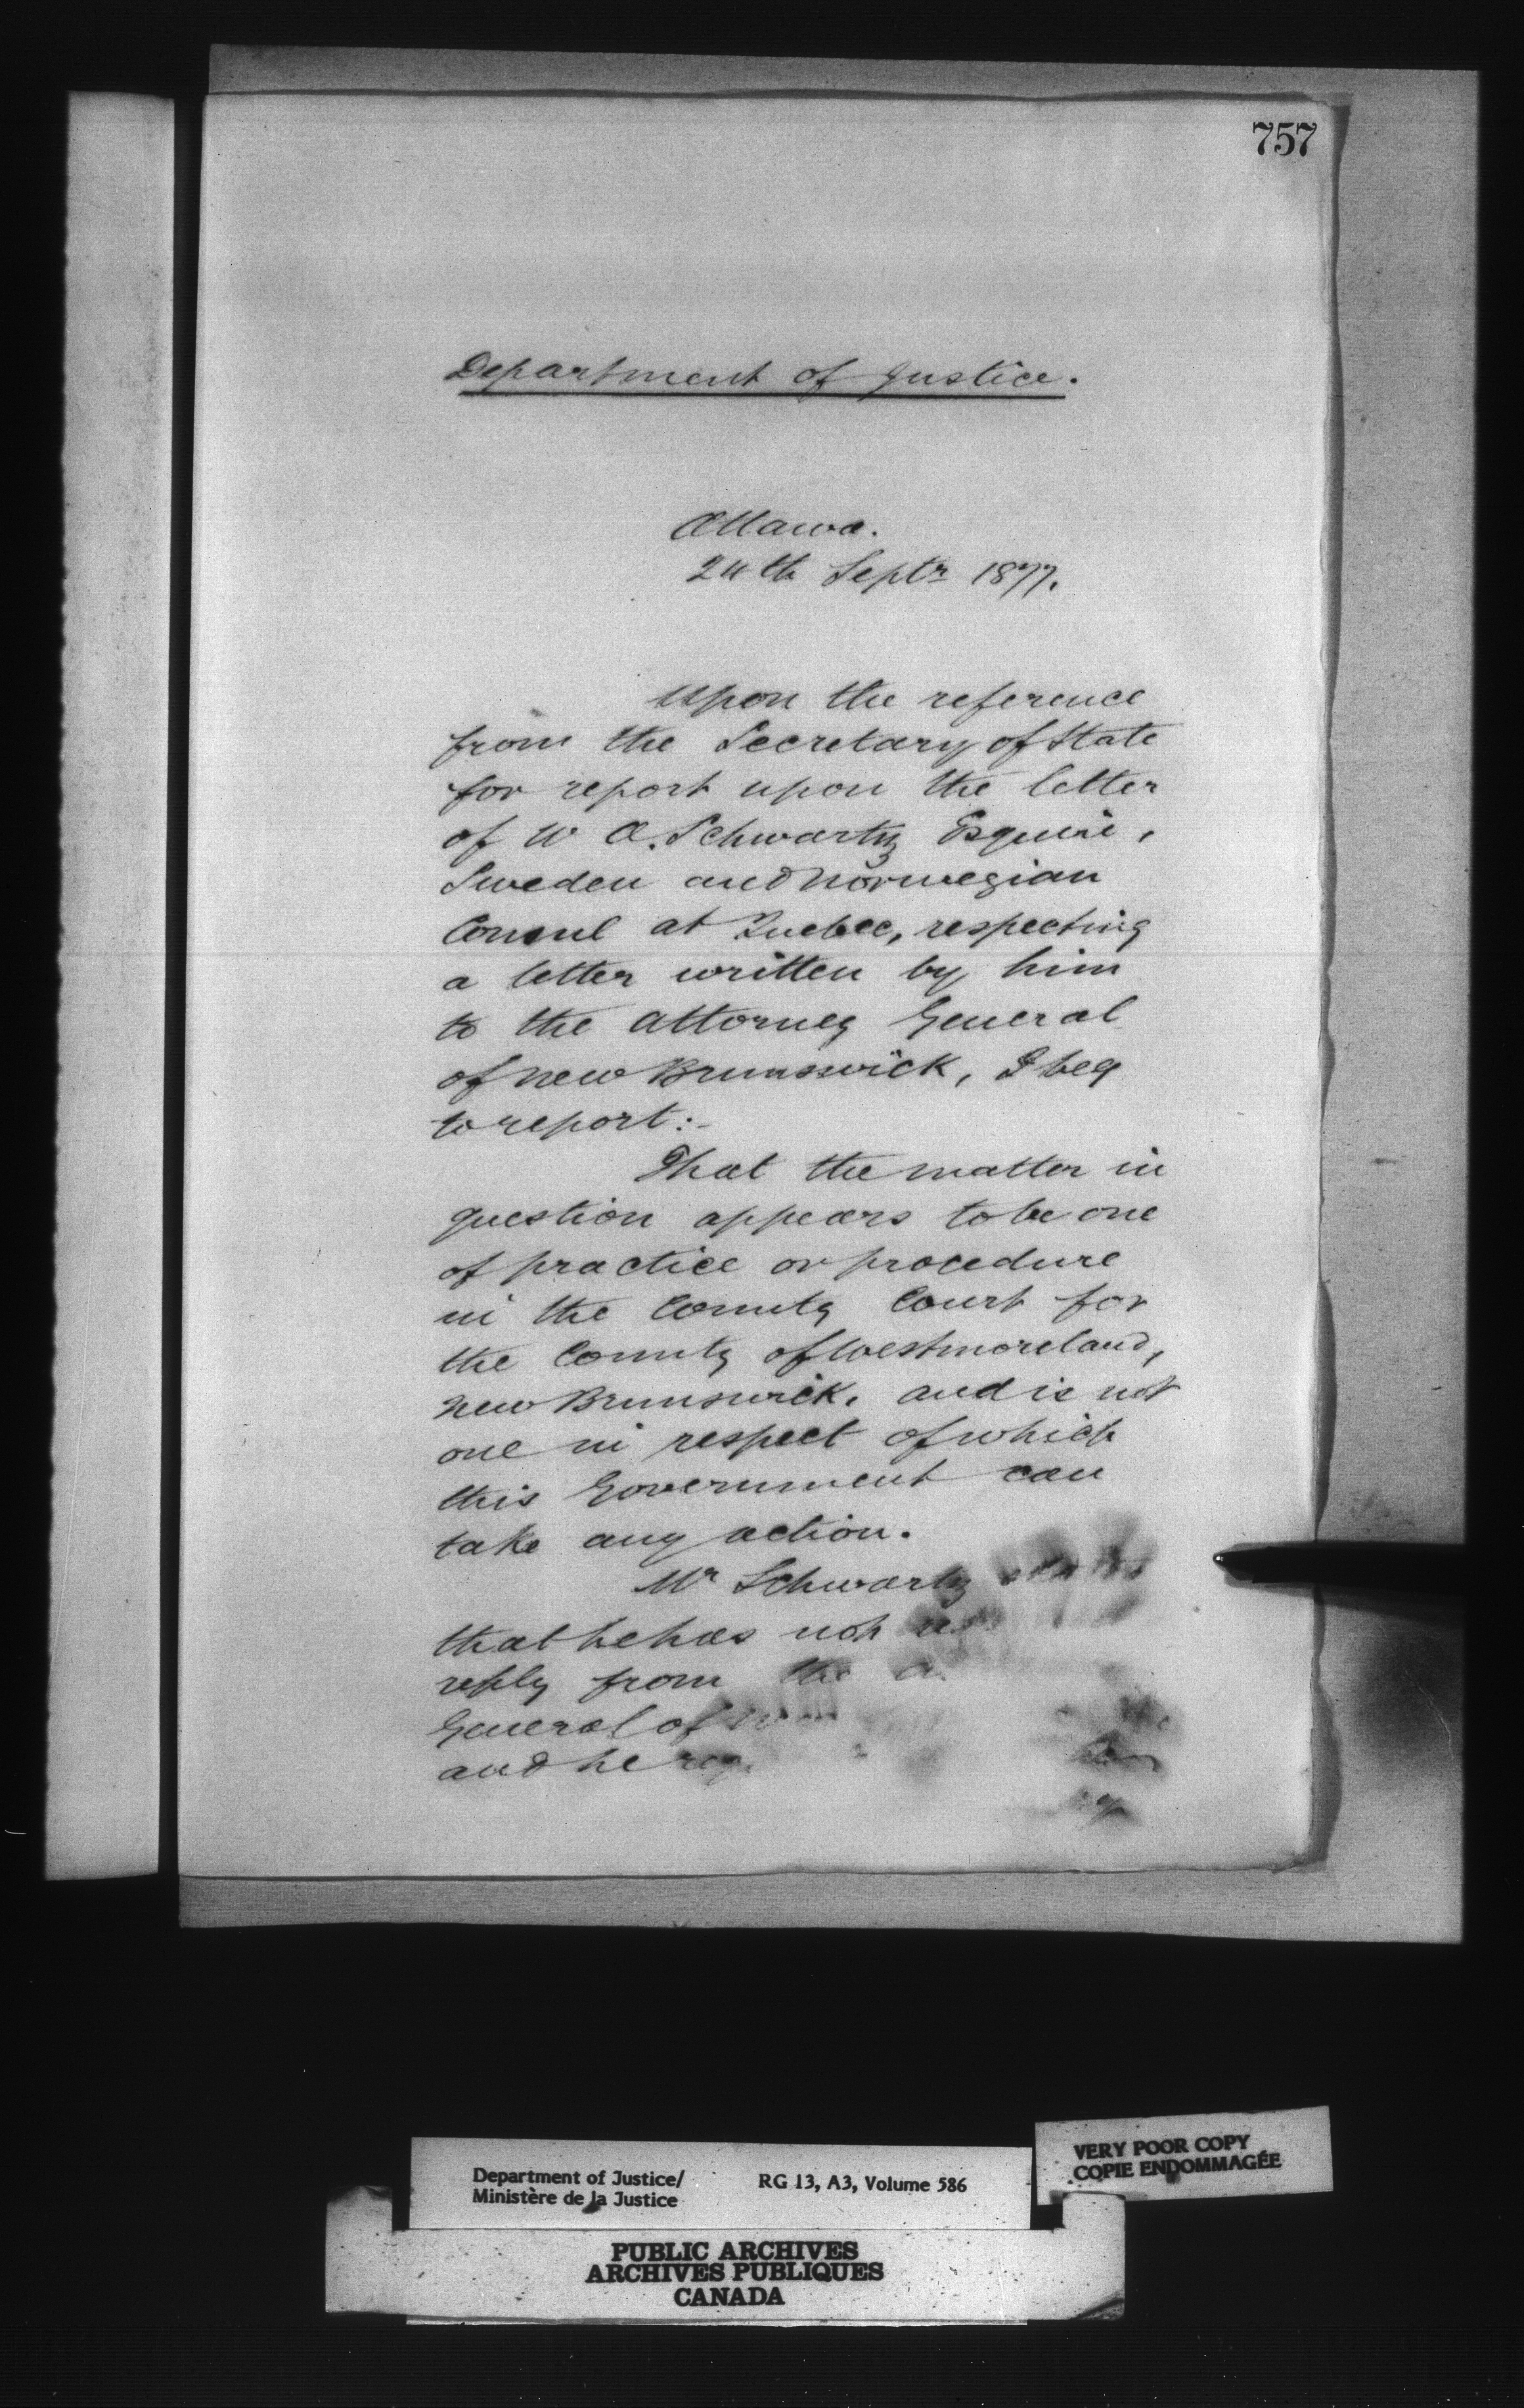 757
Department of Justice.
Ottawa.
24th Septr 1877.
Upon the reference
from the Secretary of State
for report upon the letter
of W A. Schwartz Esquire,
Sweden and Norwegian
Consul at Quebec, respecting
a letter written by him
to the Attorney General
of New Brunswick, I beg
to report:-
That the matter in
question appears to be one
of practice or procedure
in the County Court for
the County of Westmoreland,
New Brunswick, and is not
one in respect of which
this Government can
take any action.
Mr Schwartz states
that he has not
reply from the
General of
and he
VERY POOR COPY
COPIE ENDOMMAGÉE
Department of Justice/ RG 13, A3, Volume 586
Ministère de la Justice
PUBLIC ARCHIVES
ARCHIVES PUBLIQUES
CANADA